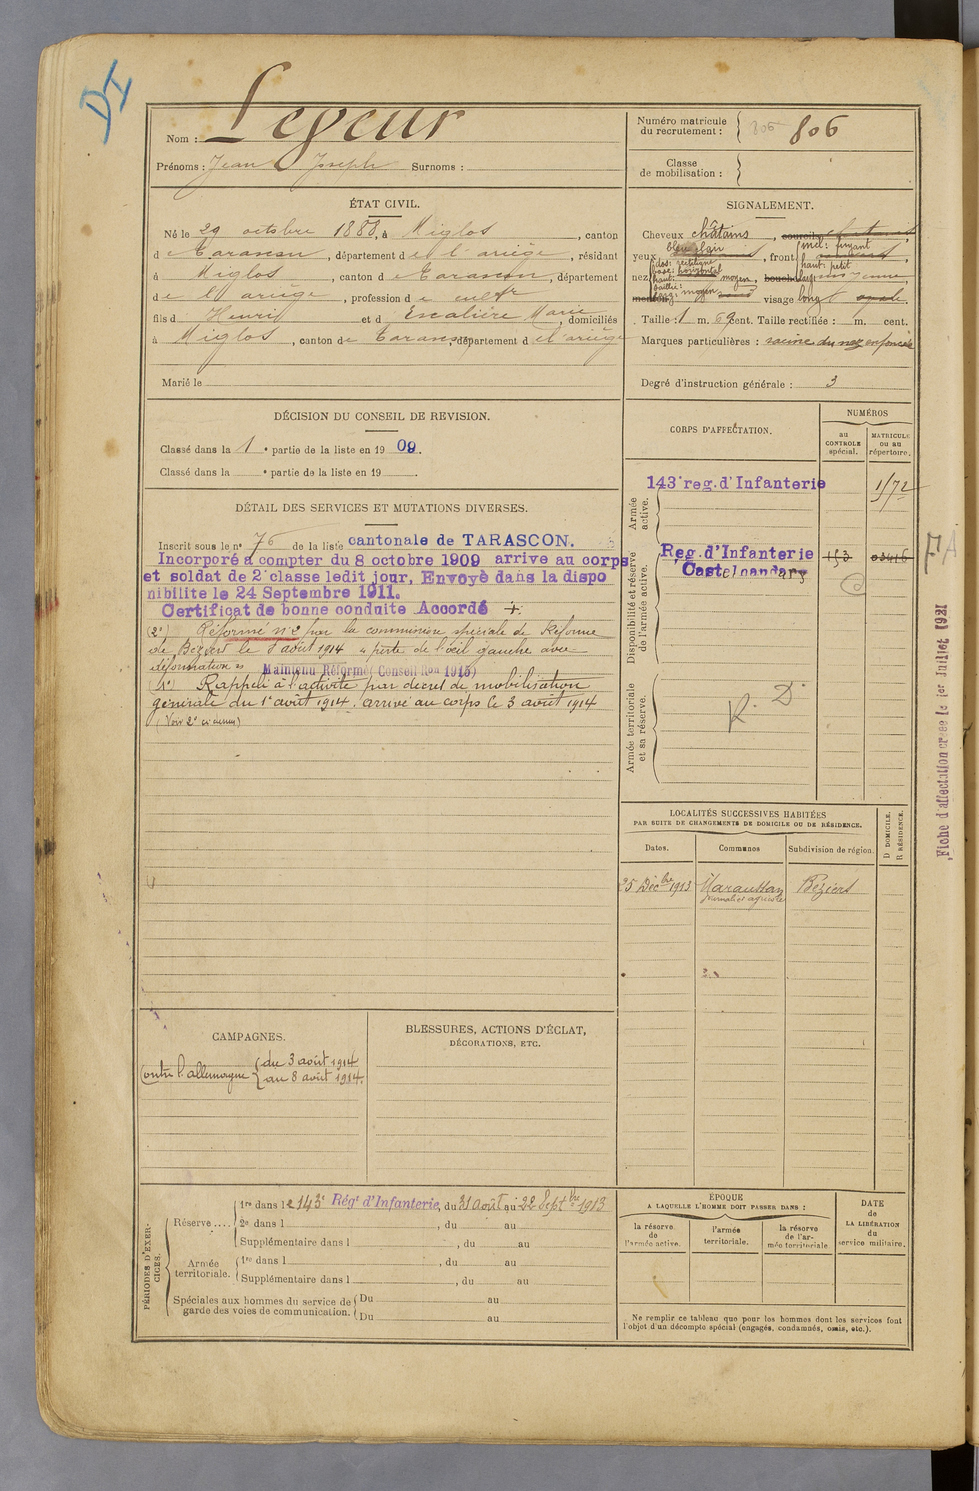 DI
Nom : Legeur
Prénoms : Jean Joseph Surnoms :
Numéro matricule du recrutement : 806 806
Classe de mobilisation :
ÉTAT CIVIL.
Né le 29 octobre 1888, à Miglos, canton
de Tarascon, département de l'ariège, résidant
à Miglos, canton de Tarascon, département
de l'ariège, profession de cultr
fils d Henri et d Escalière Marie, domiciliés
à Miglos, canton de Tarascon, département de l'ariège
Marié le
SIGNALEMENT.
Cheveux châtains, sourcils
bleu clair incl: fuyant
yeux, front
haut: petit
dos: rectiligne
base: horizontal
nez haut: moyen, bouche
saillie:
larg: moyen
menton visage long
Taille : 1 m. 69 cent. Taille rectifiée : m. cent.
Marques particulières : racine du nez enfoncée
Degré d'instruction générale : 3
DÉCISION DU CONSEIL DE REVISION.
Classé dans la 1e partie de la liste en 1909.
Classé dans la e partie de la liste en 19 .
CORPS D'AFFECTATION.
NUMÉROS
au CONTROLE spécial.
MATRICULE ou au répertoire.
Armée active.
143e reg. d'Infanterie 1172
Disponibilité et réserve de l'armée active.
Reg. d'Infanterie 153 03416
Castelnaudary
Armée territoriale et sa réserve.
R. D.
FA
Fiche d'affectation créée le 1er Juillet 1921
DÉTAIL DES SERVICES ET MUTATIONS DIVERSES.
Inscrit sous le n° 76 de la liste cantonale de TARASCON.
Incorporé à compter du 8 octobre 1909 arrive au corps
et soldat de 2e classe ledit jour, Envoyé dans la dispo
nibilite le 24 Septembre 1911.
Certificat de bonne conduite Accordé +
(2°) Réformé n°2 par la commission spéciale de Réforme
de Béziers le 8 août 1914 « perte de l'œil gauche avec
déformation » Maintenu Réformé (Conseil Ron 1915)
(1°) Rappelé à l'activité par décret de mobilisation
générale du 1er août 1914. arrivé au corps le 3 août 1914
(Voir 2° ci dessus)
LOCALITÉS SUCCESSIVES HABITÉES
PAR SUITE DE CHANGEMENTS DE DOMICILE OU DE RÉSIDENCE.
Dates. Communes Subdivision de région. D DOMICILE. R RÉSIDENCE.
25 Décbre 1913 Maraussan Béziers
journalier agricole
CAMPAGNES.
Contre l'allemagne { du 3 août 1914
au 8 août 1914.
BLESSURES, ACTIONS D'ÉCLAT,
DÉCORATIONS, ETC.
PÉRIODES D'EXERCICES.
Réserve .... 1re dans le 143e Régt d'Infanterie, du 31 Août au 22 Septbre 1913
2e dans l , du au
Supplémentaire dans l , du au
Armée territoriale. 1re dans l , du au
Supplémentaire dans l , du au
Spéciales aux hommes du service de garde des voies de communication. Du au
Du au
ÉPOQUE
A LAQUELLE L'HOMME DOIT PASSER DANS :
la réserve de l'armée active.
l'armée territoriale.
la réserve de l'armée territoriale
DATE de LA LIBÉRATION du service militaire.
Ne remplir ce tableau que pour les hommes dont les services font
l'objet d'un décompte spécial (engagés, condamnés, omis, etc.).